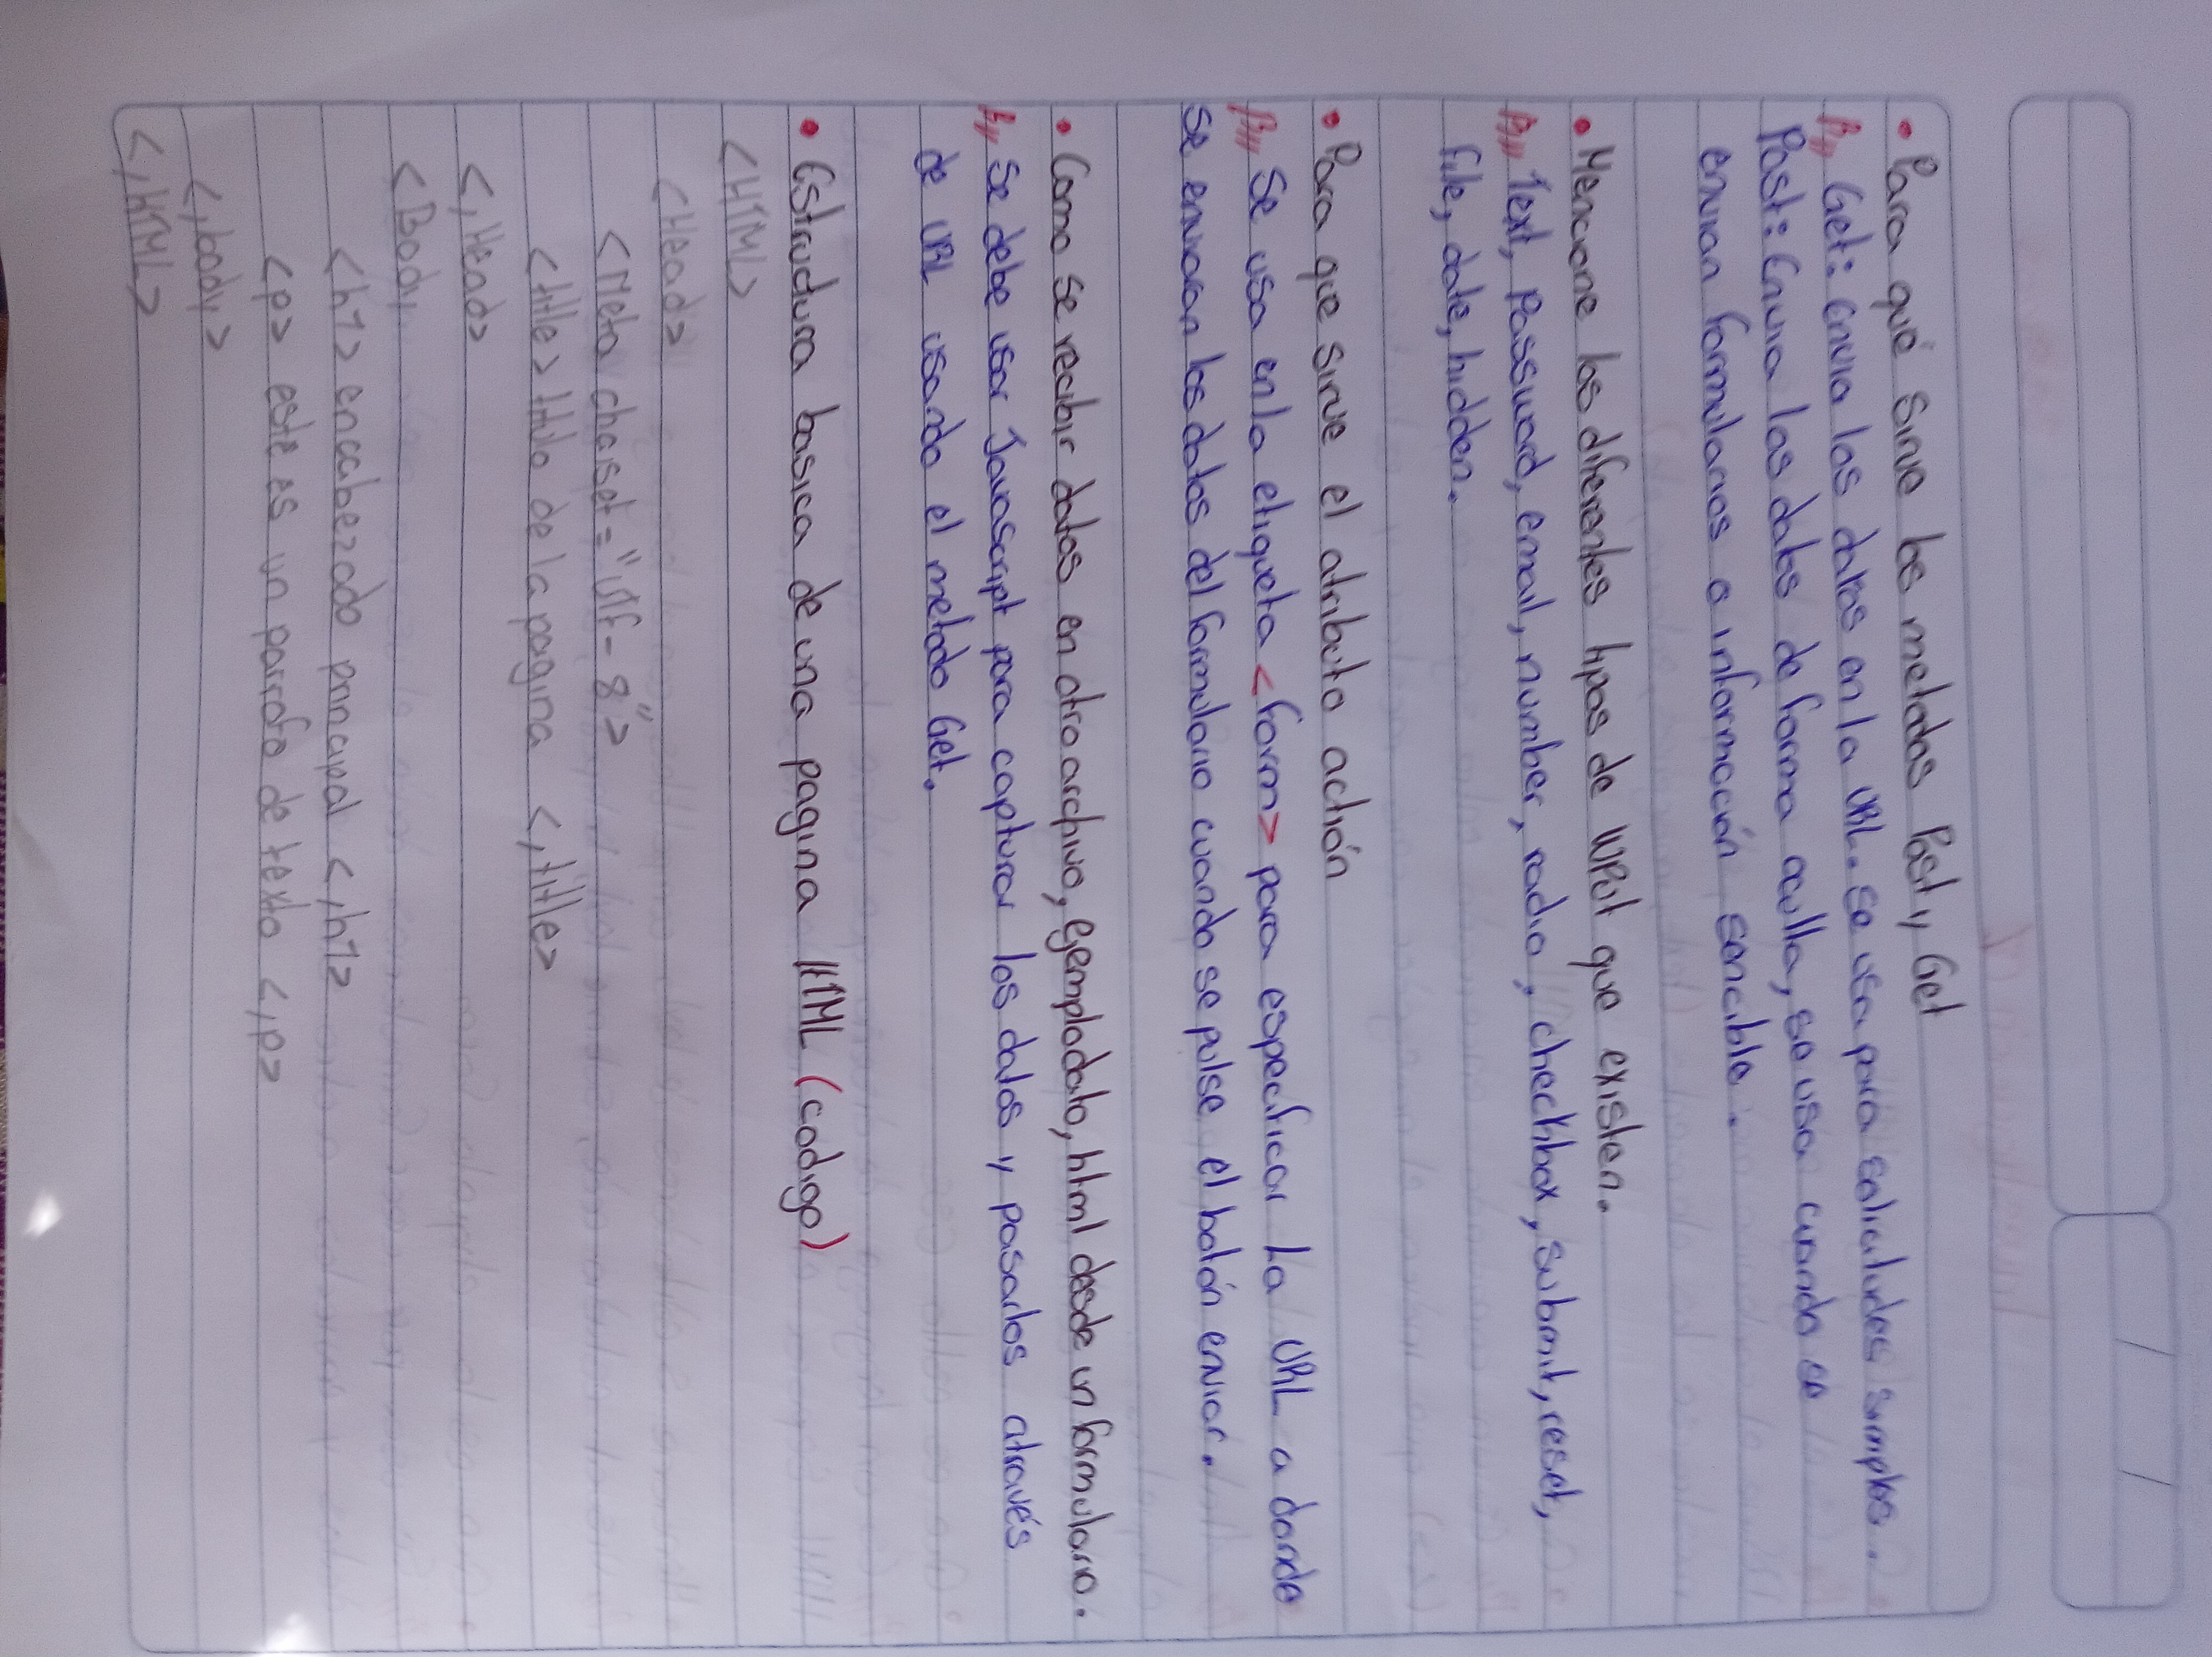 • Para qué sirve los metodos Post y Get
R// Get: envia los datos en la URL. se usa para solicitudes simples.
Post: Envia los datos de forma oculta, se usa cuando se
envian formularios o información sencible.
• Mencione los diferentes tipos de INPut que existen.
R// Text, Password, email, number, radio, checkbox, submit, reset,
file, date, hidden.
• Para que sirve el atributo actión
R// Se usa en la etiqueta <form> para especificar La URL a donde
se enviaran los datos del formulario cuando se pulse el botón enviar.
• Como se recibir datos en otro archivo, ejemplodato, html desde un formulario.
R// Se debe usar Javascript para capturar los datos y pasarlos através
de URL usando el metodo Get.
• Estructura basica de una pagina HTML (codigo)
<HTML>
<Head>
<Meta charset="UTF-8">
<title> titulo de la pagina <,title>
<,Head>
<Body
<h1> encabezado principal <,h1>
<p> este es un parrafo de texto <,p>
<,body>
<,HTML>